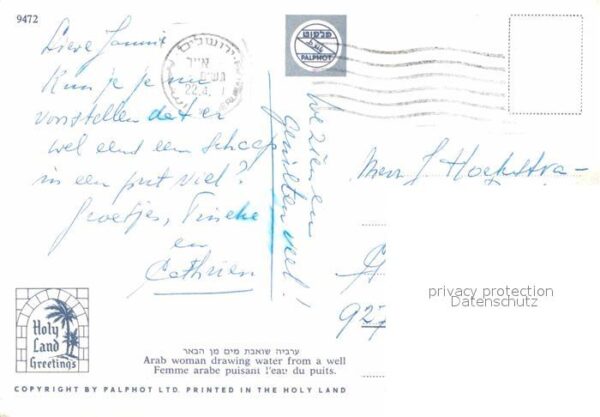 9472
Lieve Jannie
Kun je je nu
voorstellen dat er
wel eens een schaap
in een put viel?
Groetjes, Tineke
en
Cathrien
We zien en
genieten veel!
ירושלים
אייר
22.4.
פלפוט
PALPHOT
Mevr J. Hoekstra-
927
privacy protection
Datenschutz
Holy
Land
Greetings
ערביה שואבת מים מן הבאר
Arab woman drawing water from a well
Femme arabe puisant l'eau du puits.
COPYRIGHT BY PALPHOT LTD. PRINTED IN THE HOLY LAND